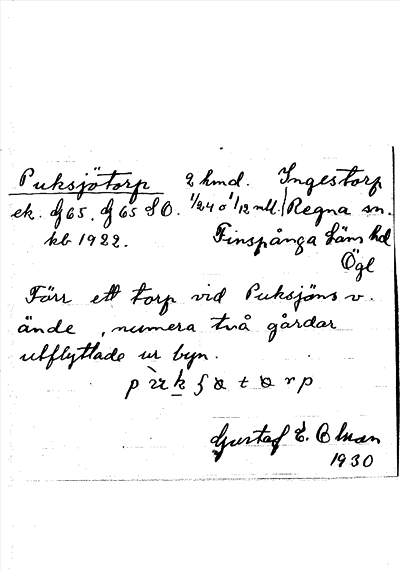 Puksjötorp 2 hmd. Ingestorp
ek. dj 65. dj 65 SO. 1/24 o 1/12 mtl. Regna sn.
kb 1922. Finspånga Läns hd
Ögl
Förr ett torp vid Puksjöns v.
ände, numera två gårdar
utflyttade ur byn.
Gustaf E. Olman
1930